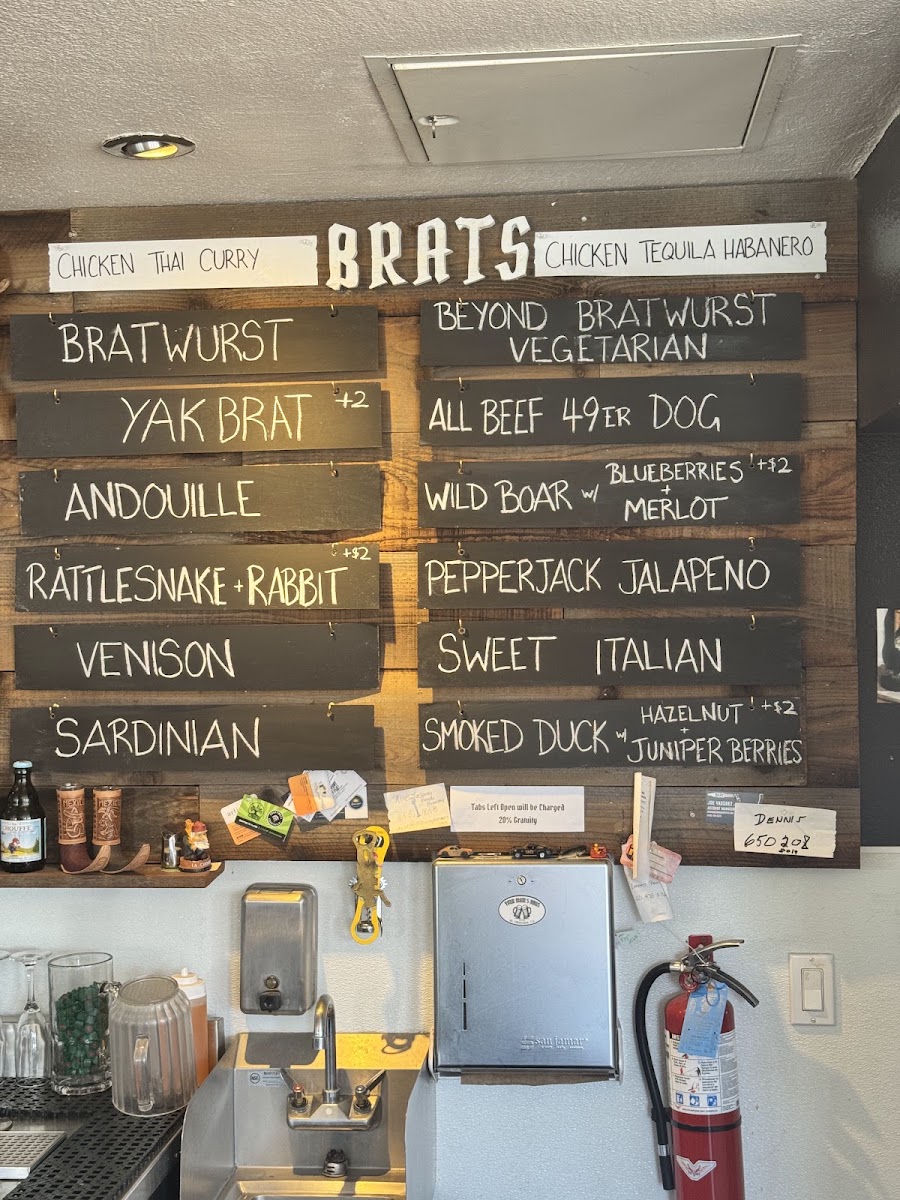 BRATS
CHICKEN THAI CURRY
CHICKEN TEQUILA HABANERO
BRATWURST
YAK BRAT +2
ANDOUILLE
RATTLESNAKE + RABBIT +$2
VENISON
SARDINIAN
BEYOND BRATWURST
VEGETARIAN
ALL BEEF 49ER DOG
WILD BOAR W/ BLUEBERRIES + MERLOT +$2
PEPPERJACK JALAPENO
SWEET ITALIAN
SMOKED DUCK W/ HAZELNUT + JUNIPER BERRIES +$2
Tabs Left Open will be Charged
20% Gratuity
DENNIS
650 208
CHOUFFE
san jamar